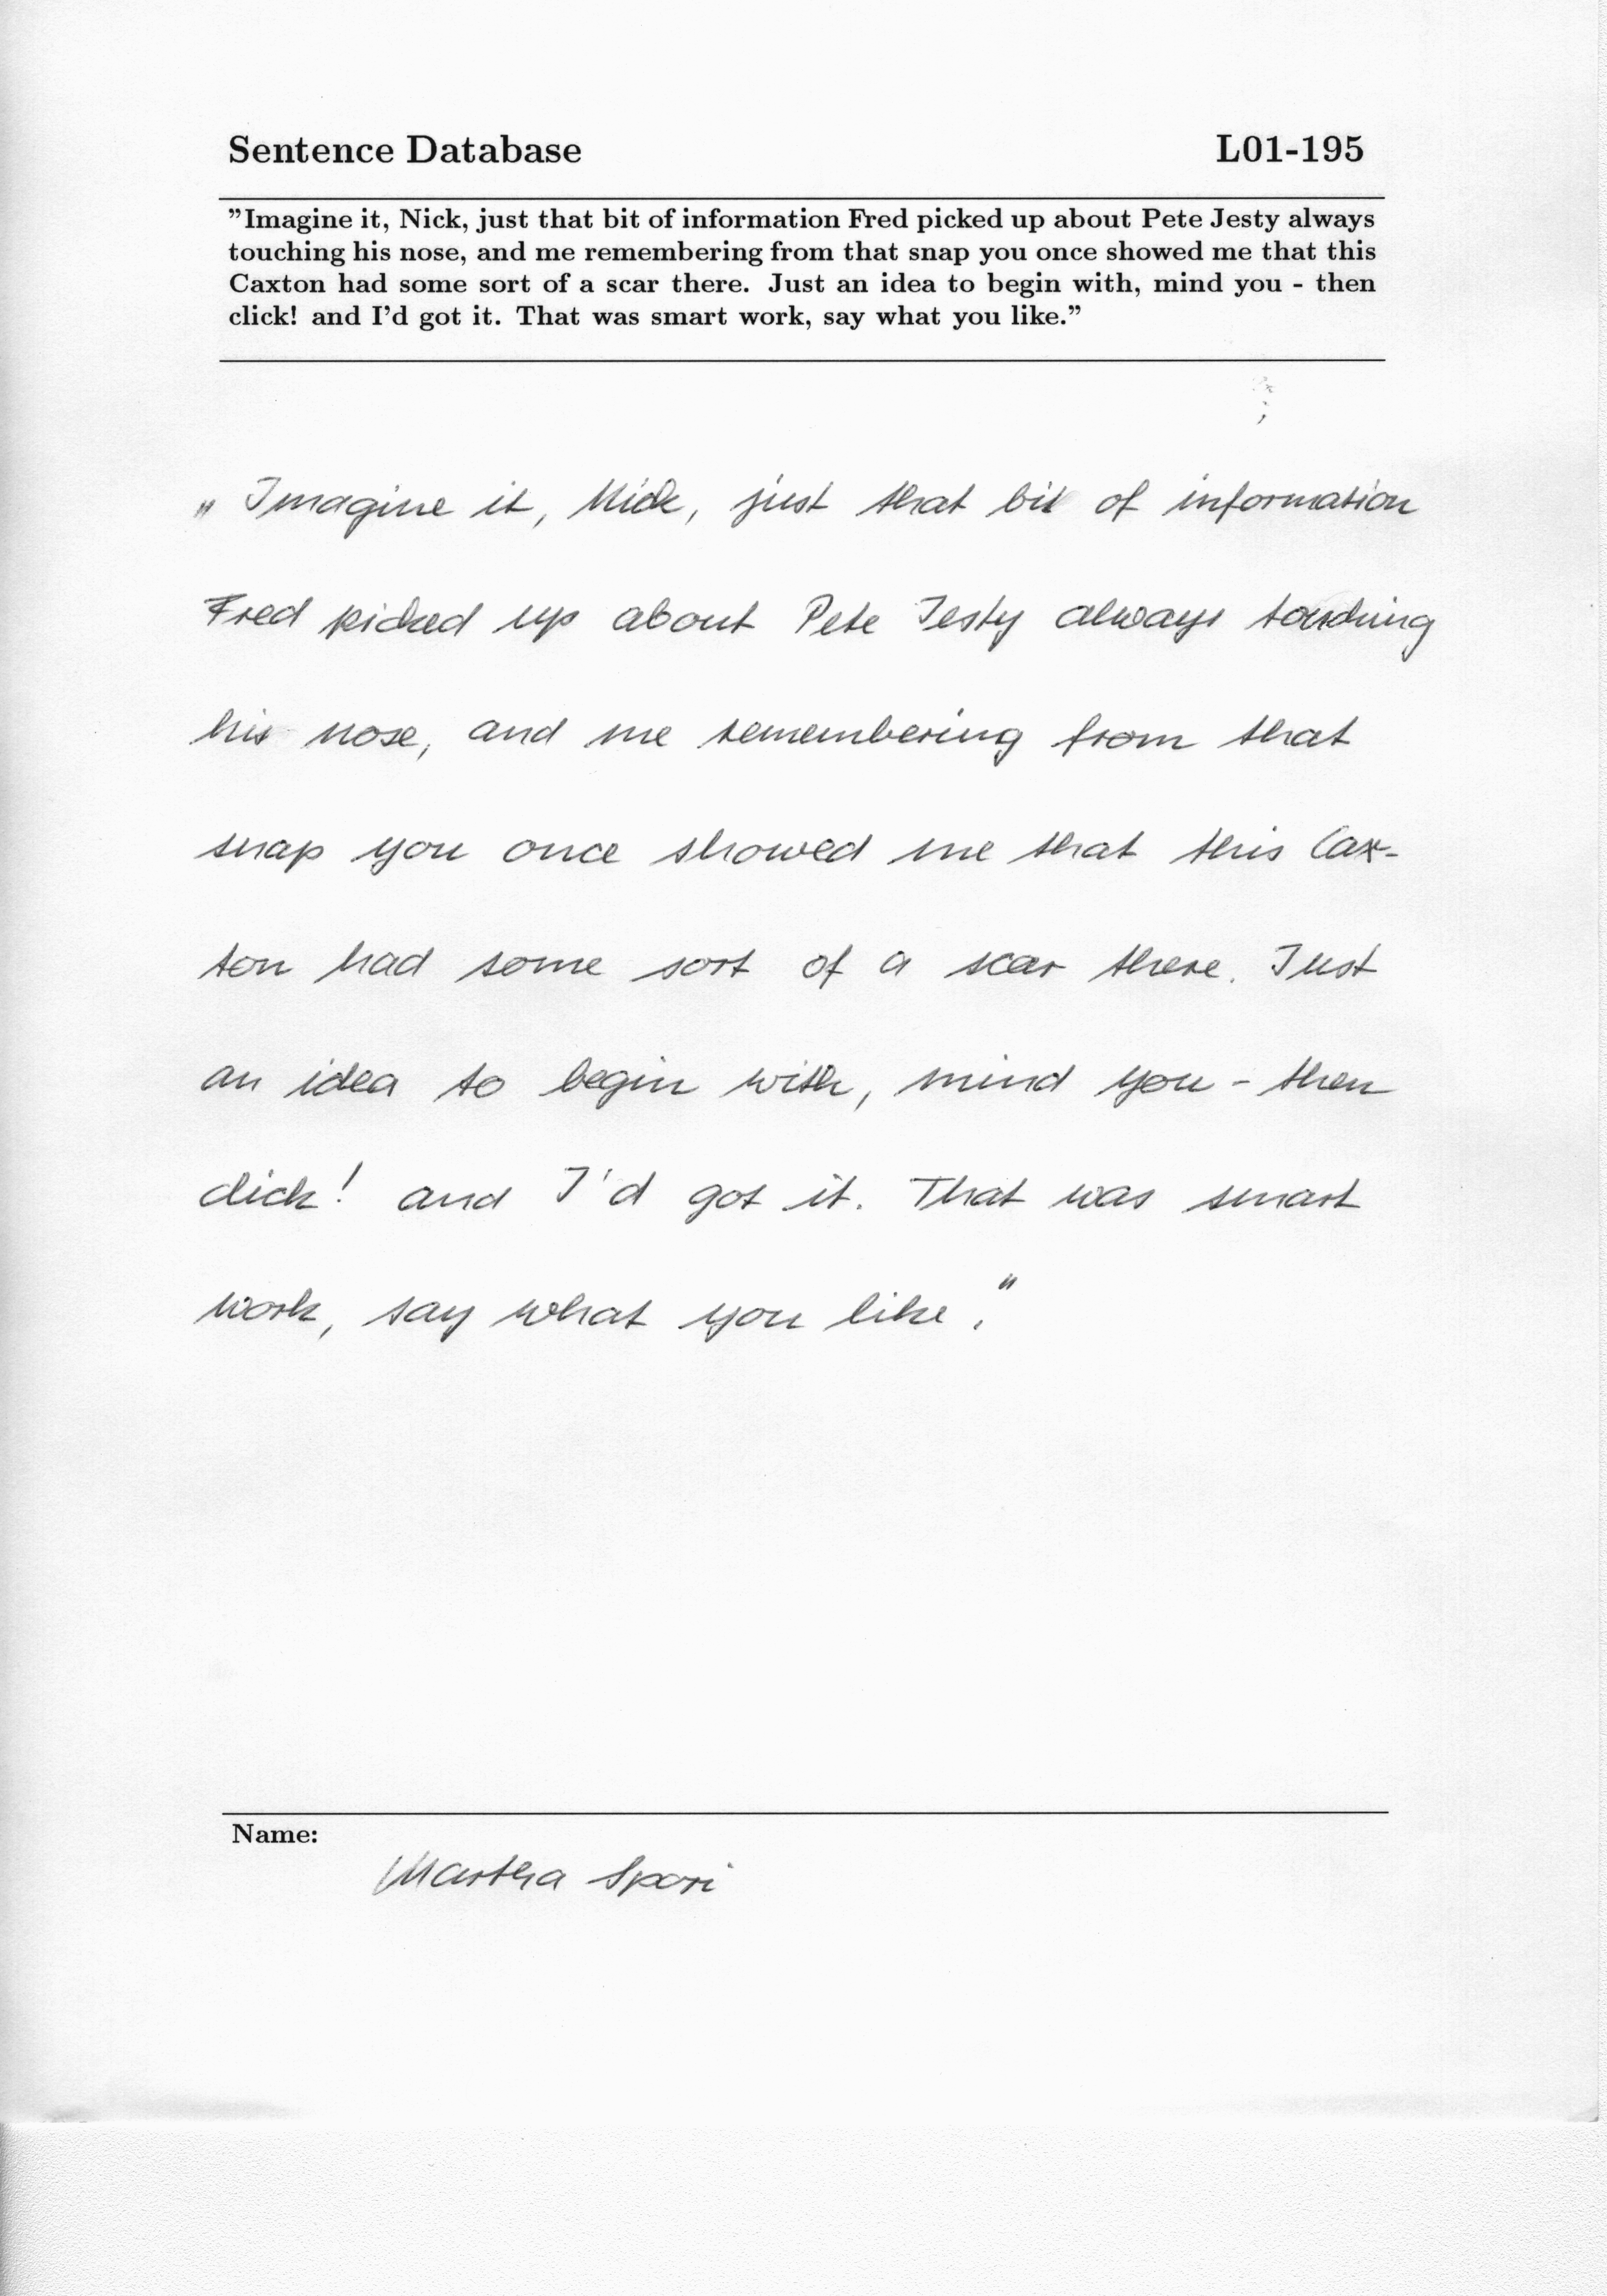 Sentence Database L01-195
"Imagine it, Nick, just that bit of information Fred picked up about Pete Jesty always
touching his nose, and me remembering from that snap you once showed me that this
Caxton had some sort of a scar there. Just an idea to begin with, mind you - then
click! and I'd got it. That was smart work, say what you like."
„Imagine it, Nick, just that bit of information
Fred picked up about Pete Jesty always touching
his nose, and me remembering from that
snap you once showed me that this Cax-
ton had some sort of a scar there. Just
an idea to begin with, mind you - then
click! and I'd got it. That was smart
work, say what you like."
Name:
Martha Spori